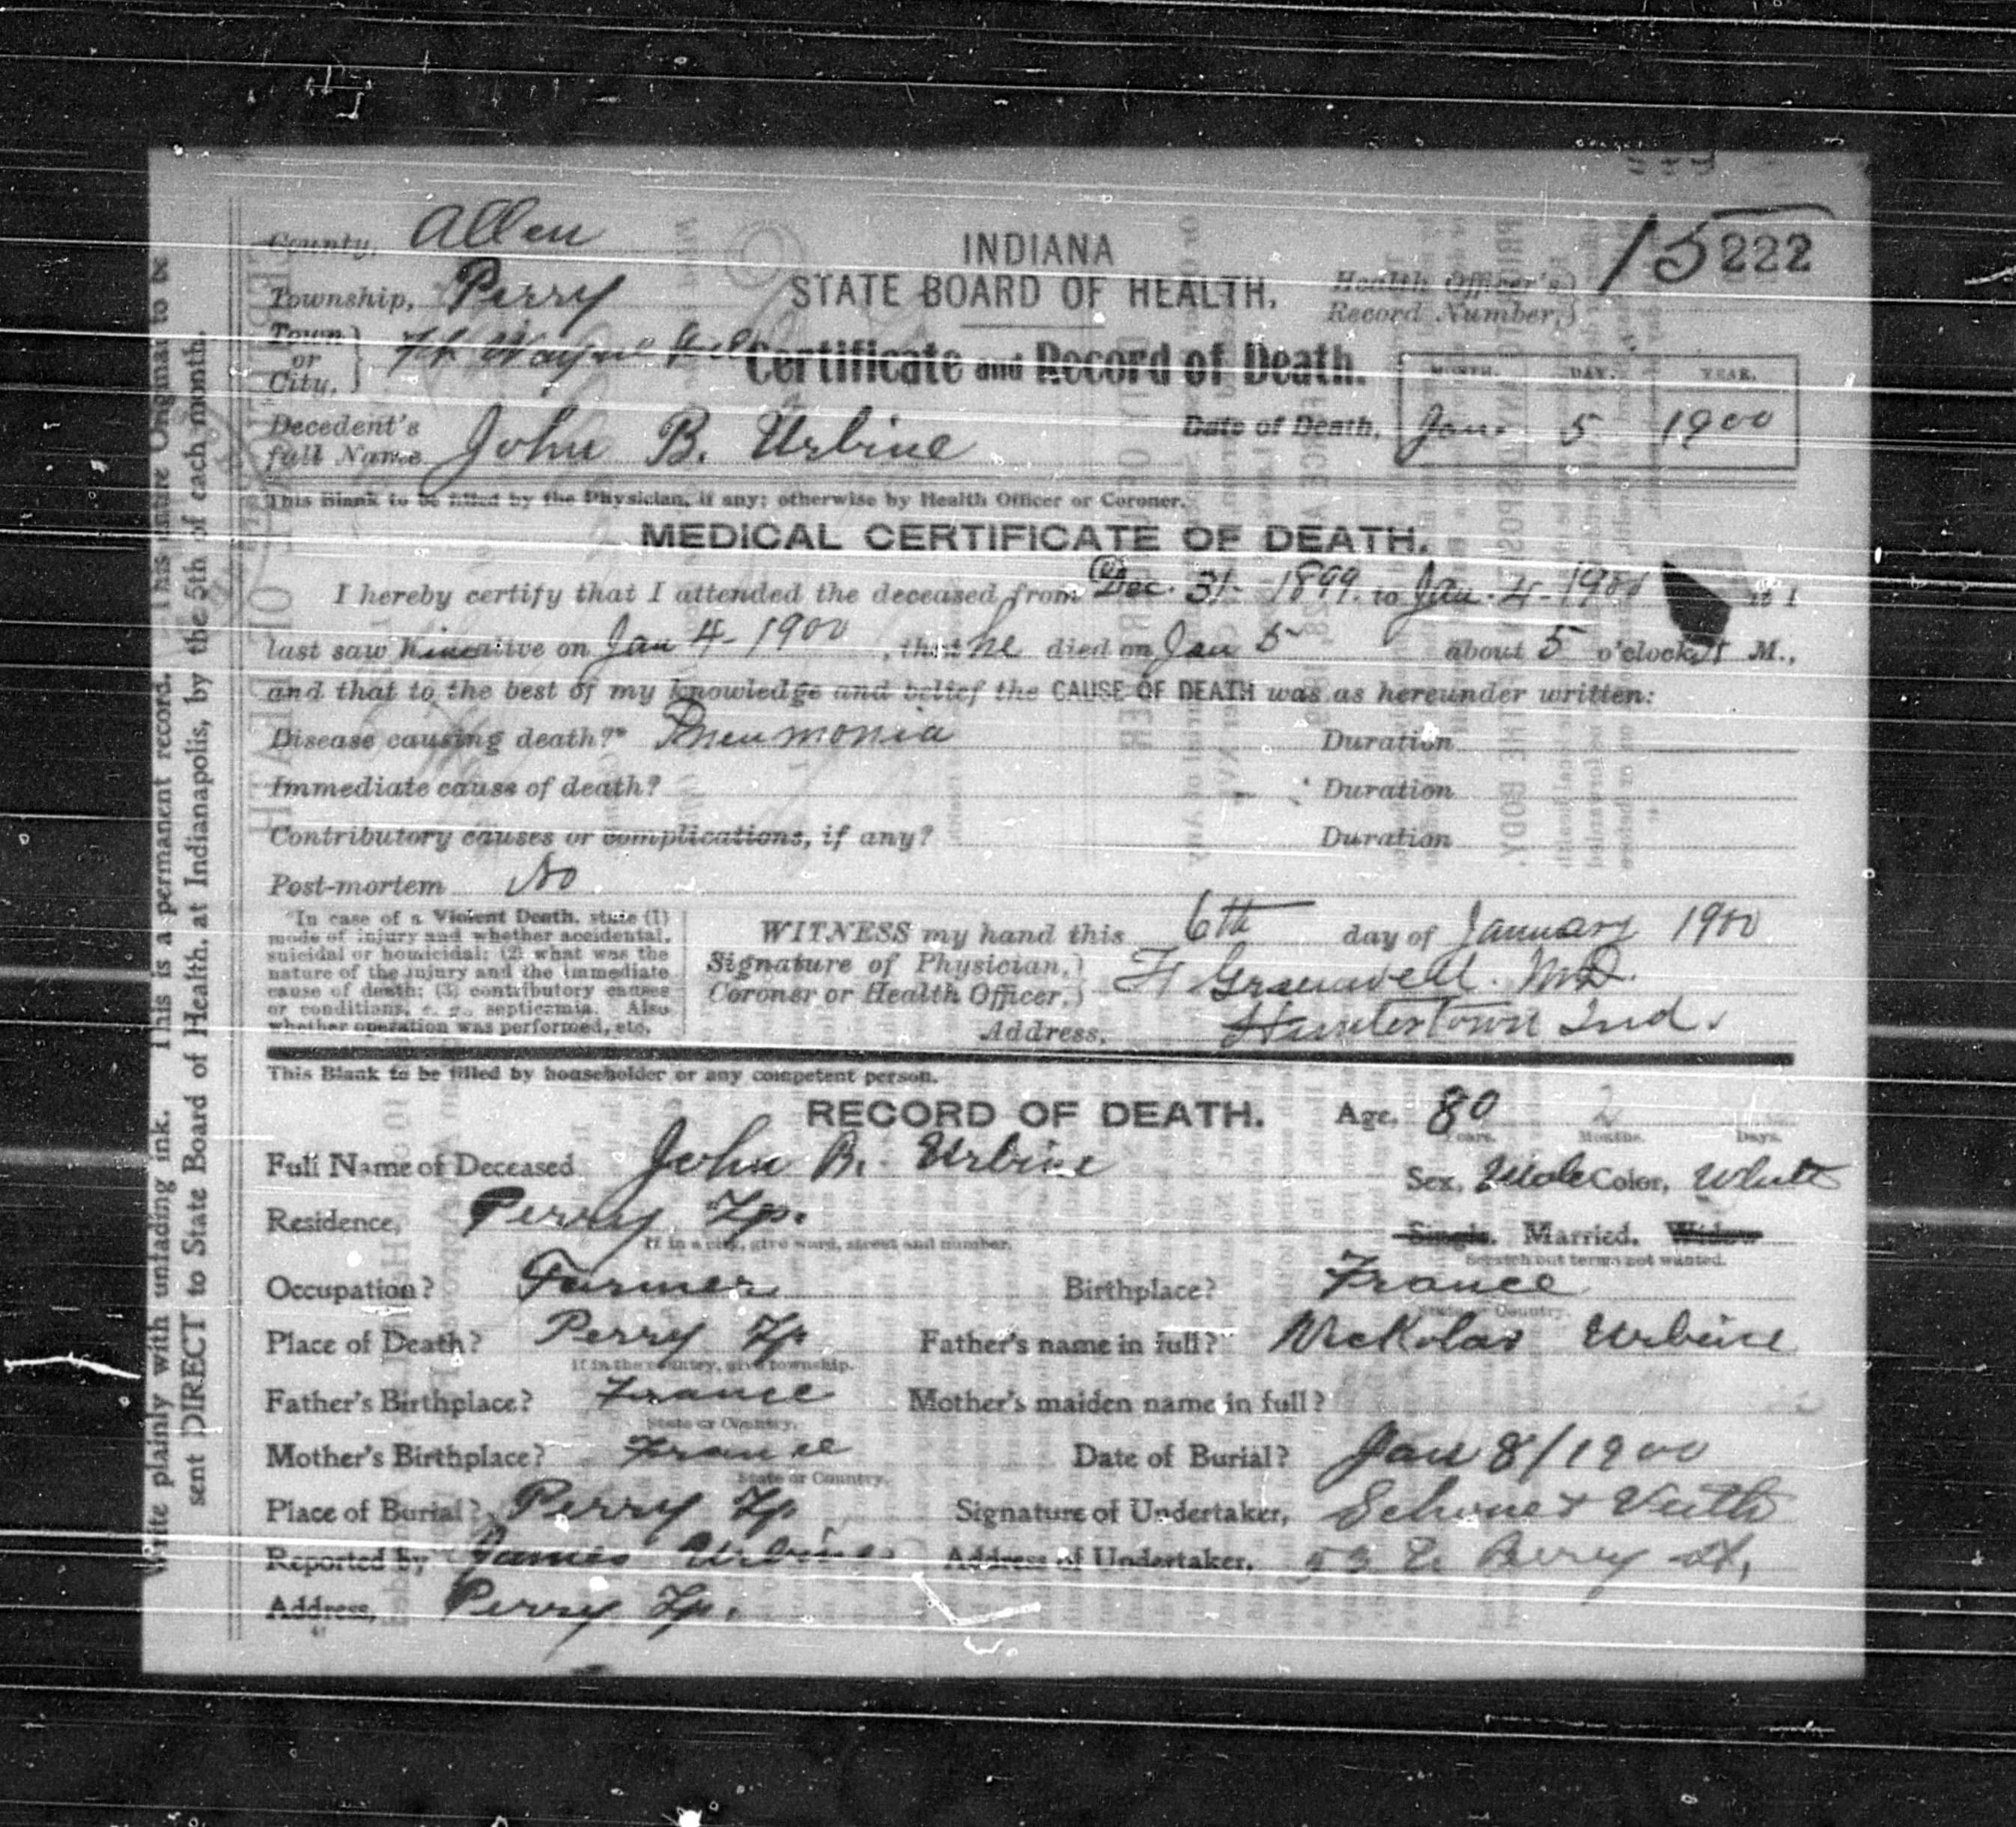 County, Allen
INDIANA
15222
Township, Perry
STATE BOARD OF HEALTH.
Health Officer's Record Number,
Town or City, Ft. Wayne Ind
Certificate and Record of Death.
MONTH. DAY. YEAR.
Decedent's full Name John B. Urbine
Date of Death, Jan. 5 1900
This Blank to be filled by the Physician, if any; otherwise by Health Officer or Coroner.
MEDICAL CERTIFICATE OF DEATH.
I hereby certify that I attended the deceased from Dec. 31- 1899. to Jan. 4- 1900 I
last saw alive on Jan 4- 1900, that he died on Jan 5 about 5 o'clock M.,
and that to the best of my knowledge and belief the CAUSE OF DEATH was as hereunder written:
Disease causing death?* Pneumonia Duration
Immediate cause of death? Duration
Contributory causes or complications, if any? Duration
Post-mortem No
*In case of a Violent Death, state (1)
mode of injury and whether accidental,
suicidal or homicidal; (2) what was the
nature of the injury and the immediate
cause of death; (3) contributory causes
or conditions, e. g., septicæmia. Also
whether operation was performed, etc.
WITNESS my hand this 6th day of January 1900
Signature of Physician, Coroner or Health Officer, F Greenwell. M.D.
Address, Huntertown Ind.
This Blank to be filled by householder or any competent person.
RECORD OF DEATH. Age, 80 2
Years. Months. Days.
Full Name of Deceased John B. Urbine
Sex, Male Color, White
Residence, Perry Tp.
If in a city, give ward, street and number.
Single. Married. Widow
Scratch out terms not wanted.
Occupation? Farmer Birthplace? France
State or Country.
Place of Death? Perry Tp Father's name in full? Nickolas Urbine
If in the country, give township.
Father's Birthplace? France Mother's maiden name in full?
State or Country.
Mother's Birthplace? France Date of Burial? Jan 8/1900
State or Country.
Place of Burial? Perry Tp Signature of Undertaker, Schone & Veith
Reported by James Urbine Address of Undertaker, 53 E Berry St,
Address, Perry Tp.
Write plainly with unfading ink. This is a permanent record. This entire Original to be
sent DIRECT to State Board of Health, at Indianapolis, by the 5th of each month.